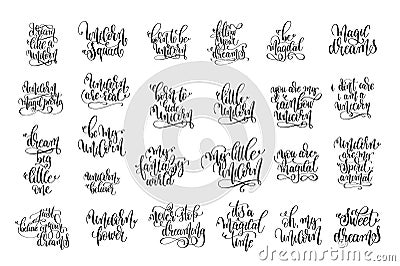 dream
like a
unicorn
Unicorn
Squad
born to be
unicorn
follow
your
dreams
be
magical
Magic
dreams
Unicorn
magic party
Unicorn
are real
born to
ride
Unicorn
little
Unicorn
you are my
rainbow
unicorn
i don't care
i am a
unicorn
dream
big
little
one
be my
unicorn
unicorn
believer
my
fantasy
world
my little
unicorn
you are
magical
Unicorn
are my
spirit
animal
just
believe
in your
dreams
Unicorn
power
never stop
dreaming
it's a
magical
time
oh, my
unicorn
sweet
dreams